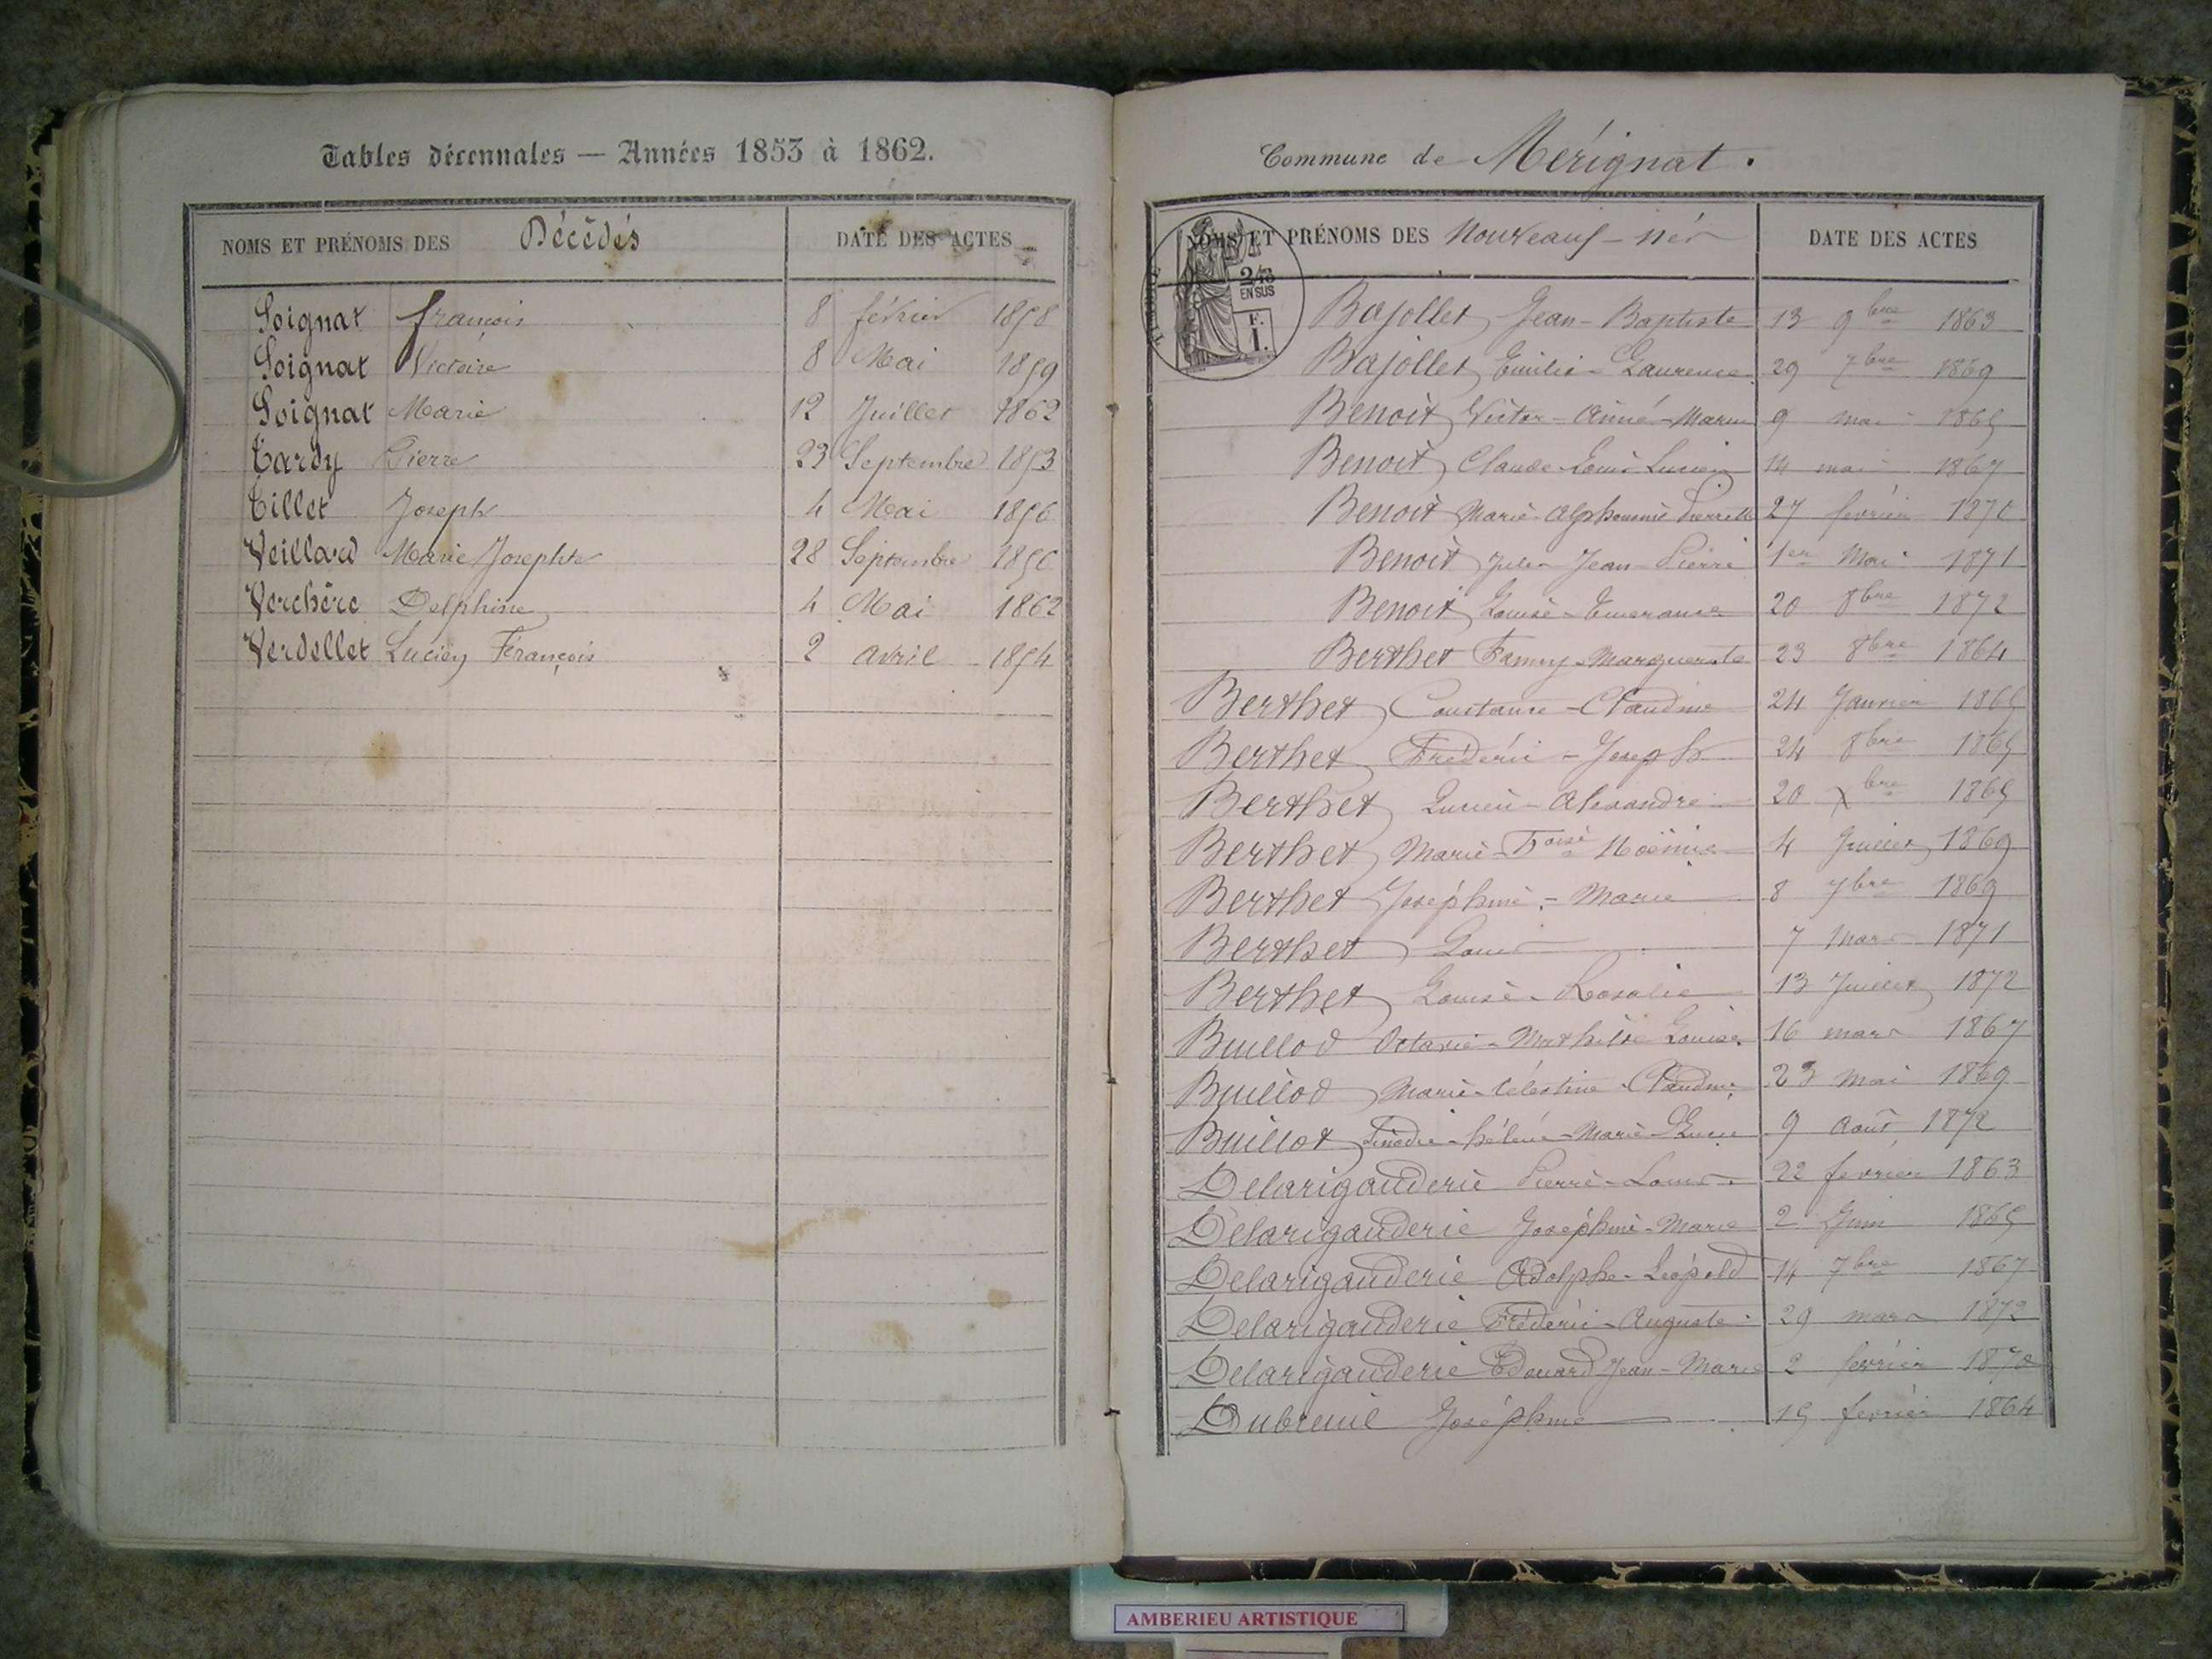 Tables décennales — Années 1853 à 1862.
NOMS ET PRÉNOMS DES Décédés DATE DES ACTES
Soignat françois 8 février 1858
Soignat Victoire 8 Mai 1859
Soignat Marie 12 Juillet 1862
Tardy Pierre 23 Septembre 1853
Tillet Joseph 4 Mai 1856
Veillard Marie Josephte 28 Septembre 1856
Verchère Delphine 4 Mai 1862
Verdellet Lucien François 2 avril 1854
Commune de Mérignat.
NOMS ET PRÉNOMS DES Nouveaux-nés DATE DES ACTES
2/10 EN SUS
F. 1.
Bajollet Jean-Baptiste 13 9bre 1863
Bajollet Emilie-Laurence 29 7bre 1869
Benoit Victor-Aimé-Marie 9 mai 1865
Benoit Claude Louis Lucien 14 mai 1867
Benoit Marie-Alphonsine 27 février 1870
Benoit Jules Jean-Pierre 1er Mai 1871
Benoit Louise-Emerance 20 8bre 1872
Berthet Fanny-Marguerite 23 8bre 1864
Berthet Constance-Claudine 24 Janvier 1865
Berthet Fréderic-Joseph 24 8bre 1865
Berthet Lucien-Alexandre 20 Xbre 1865
Berthet Marie-Foise Noëmie 4 Juillet 1869
Berthet Joséphine-Marie 8 7bre 1869
Berthet Louis 7 Mars 1871
Berthet Louise-Rosalie 13 Juillet 1872
Buillod Octavie-Mathilde Louise 16 mars 1867
Buillod Marie-Célestine-Claudine 23 Mai 1869
Buillot hélène-Marie-Lucie 9 Août 1872
Delarigauderie Pierre-Louis 22 fevrier 1863
Delarigauderie Joséphine-Marie 2 Juin 1865
Delarigauderie Adolphe-Léopold 14 7bre 1867
Delarigauderie Fréderic-Auguste 29 mars 1872
Delarigauderie Edouard Jean-Marie 2 février 1870
Dubreuil Joséphine 15 fevrier 1864
AMBERIEU ARTISTIQUE